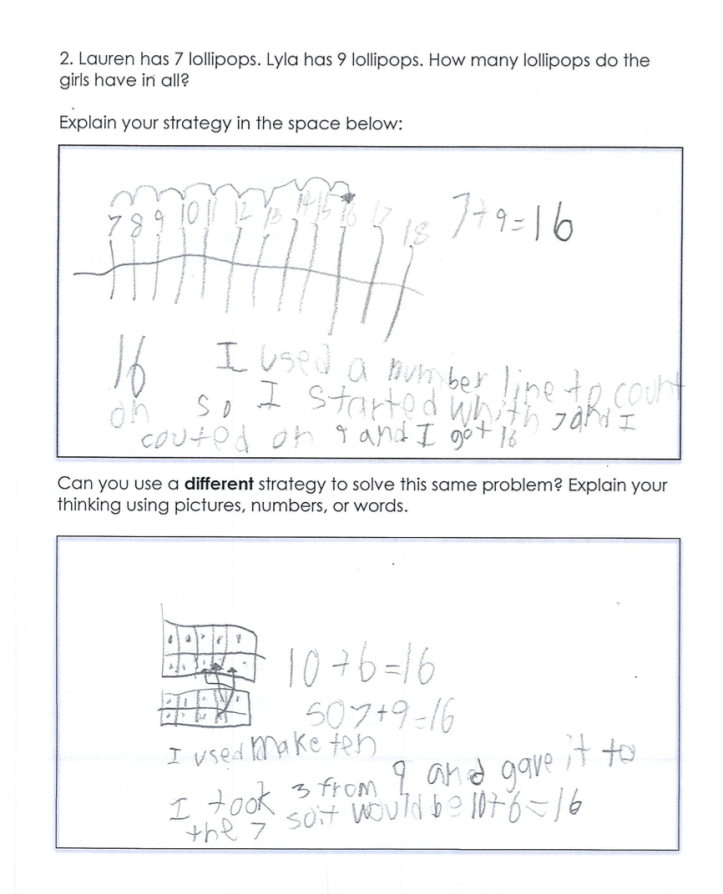 2. Lauren has 7 lollipops. Lyla has 9 lollipops. How many lollipops do the
girls have in all?
Explain your strategy in the space below:
7 8 9 10 11 12 13 14 15 16 17 18
7+9=16
16 I used a number line to count
on so I started whith 7 and I
couted on 9 and I got 16
Can you use a different strategy to solve this same problem? Explain your
thinking using pictures, numbers, or words.
10+6=16
so 7+9=16
I used make ten
I took 3 from 9 and gave it to
the 7 so it would be 10+6=16